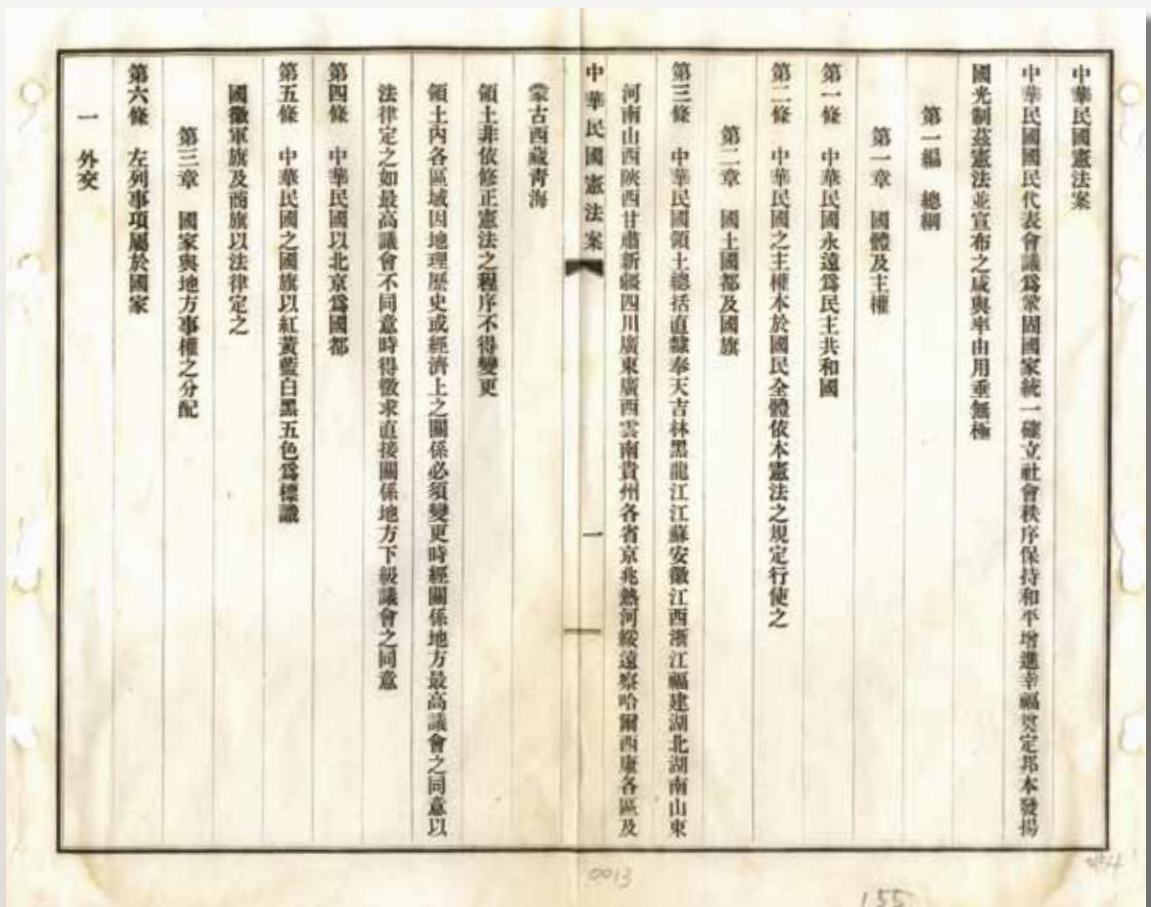 中華民國憲法案
中華民國國民代表會議爲鞏固國家統一確立社會秩序保持和平增進幸福奠定邦本發揚
國光制茲憲法並宣布之咸與率由用垂無極
第一編　總綱
第一章　國體及主權
第一條　中華民國永遠爲民主共和國
第二條　中華民國之主權本於國民全體依本憲法之規定行使之
第二章　國土國都及國旗
第三條　中華民國領土總括直隸奉天吉林黑龍江江蘇安徽江西浙江福建湖北湖南山東
河南山西陝西甘肅新疆四川廣東廣西雲南貴州各省京兆熱河綏遠察哈爾西康各區及
中華民國憲法案　一
蒙古西藏青海
領土非依修正憲法之程序不得變更
領土內各區域因地理歷史或經濟上之關係必須變更時經關係地方最高議會之同意以
法律定之如最高議會不同意時得徵求直接關係地方下級議會之同意
第四條　中華民國以北京爲國都
第五條　中華民國之國旗以紅黃藍白黑五色爲標識
國徽軍旗及商旗以法律定之
第三章　國家與地方事權之分配
第六條　左列事項屬於國家
一　外交
0013
155